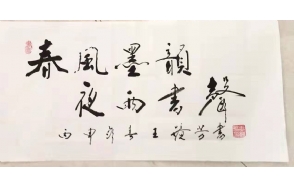 春風墨韻
夜雨書聲
丙申年 王 書